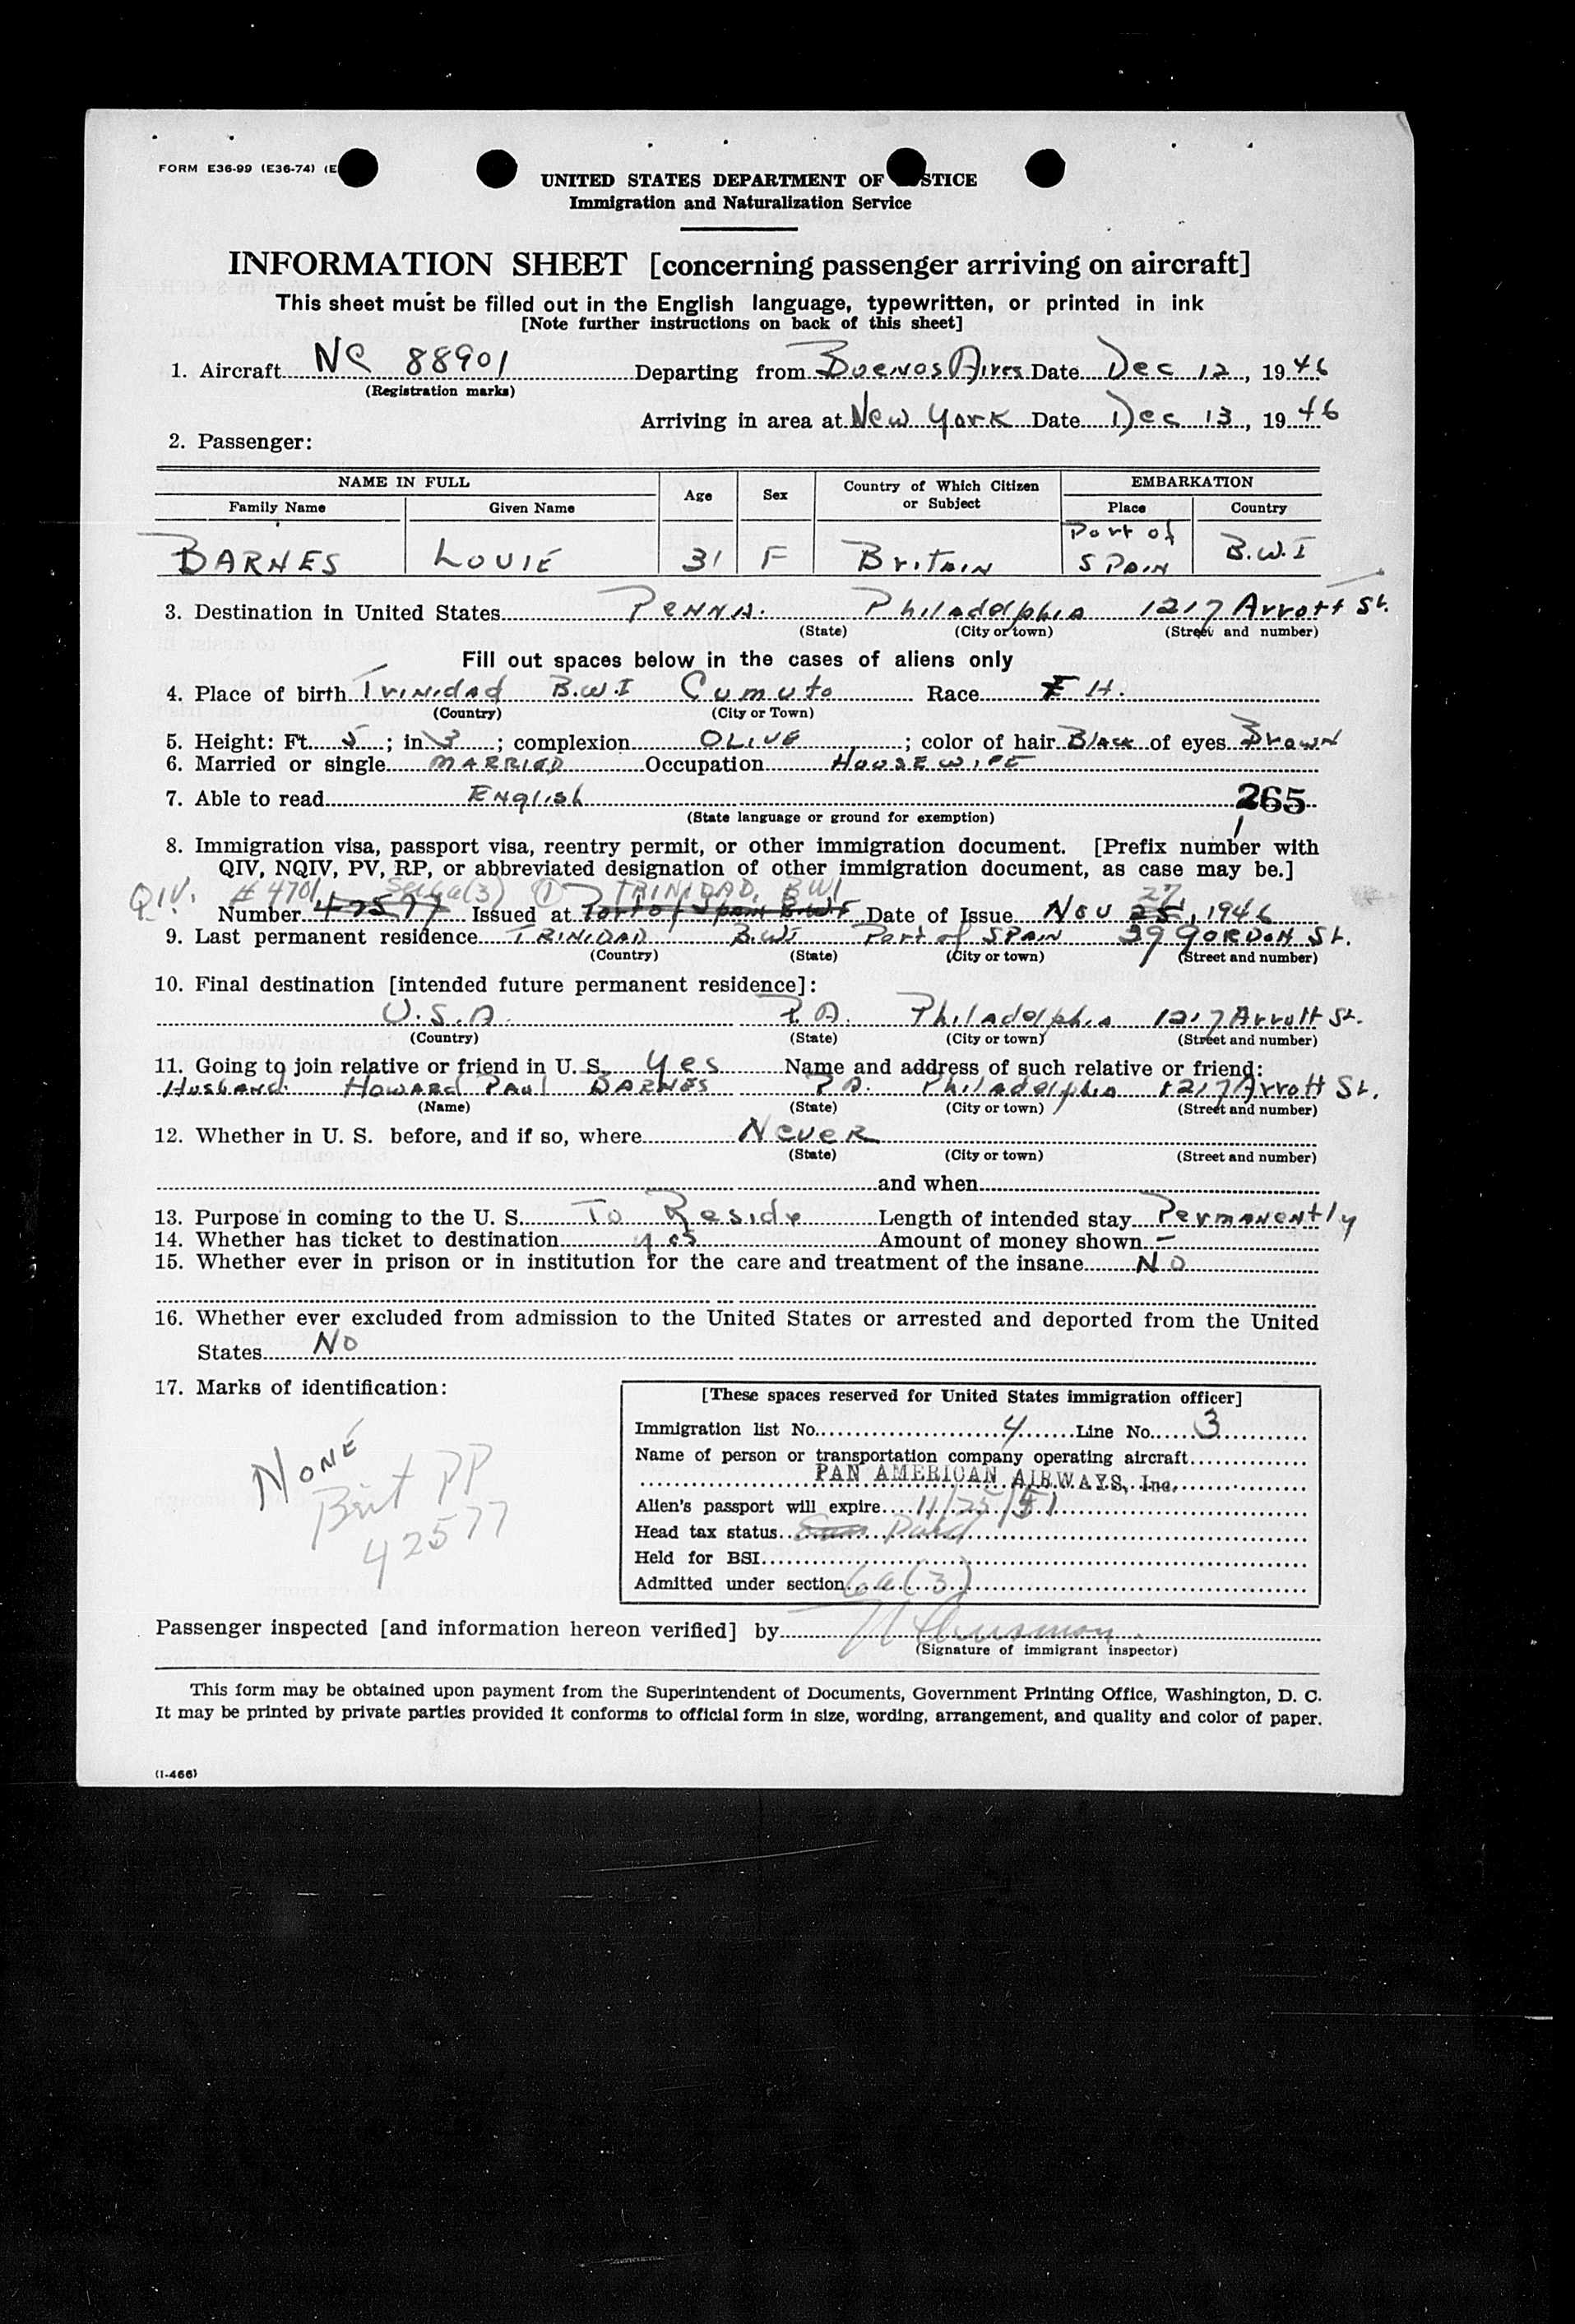 FORM E36-99 (E36-74) (E
UNITED STATES DEPARTMENT OF STICE
Immigration and Naturalization Service
INFORMATION SHEET [concerning passenger arriving on aircraft]
This sheet must be filled out in the English language, typewritten, or printed in ink
[Note further instructions on back of this sheet]
1. Aircraft NC 88901 Departing from Buenos Aires Date Dec 12, 1946
(Registration marks)
Arriving in area at New York Date Dec 13, 1946
2. Passenger:
NAME IN FULL Age Sex Country of Which Citizen or Subject EMBARKATION
Family Name Given Name Place Country
BARNES LOUIE 31 F Britain Port of Spain B.W.I
3. Destination in United States Penna. Philadelphia 1217 Arrott St.
(State) (City or town) (Street and number)
Fill out spaces below in the cases of aliens only
4. Place of birth Trinidad B.W.I Cumuto Race H.
(Country) (City or Town)
5. Height: Ft. 5; in 3; complexion OLIVE; color of hair Black of eyes Brown
6. Married or single MARRIED Occupation HOUSEWIFE
7. Able to read English 265
(State language or ground for exemption)
8. Immigration visa, passport visa, reentry permit, or other immigration document. [Prefix number with
QIV, NQIV, PV, RP, or abbreviated designation of other immigration document, as case may be.]
QIV. # 4701 6a(3) TRINIDAD, BWI 27
Number 42577 Issued at Port of Spain B.W.I Date of Issue Nov 25, 1946
9. Last permanent residence TRINIDAD B.W.I Port of SPAIN 39 GORDON St.
(Country) (State) (City or town) (Street and number)
10. Final destination [intended future permanent residence]:
U.S.A. P.A. Philadelphia 1217 Arrott St.
(Country) (State) (City or town) (Street and number)
11. Going to join relative or friend in U. S. Yes Name and address of such relative or friend:
Husband. Howard Paul BARNES P.A. Philadelphia 1217 Arrott St.
(Name) (State) (City or town) (Street and number)
12. Whether in U. S. before, and if so, where Never
(State) (City or town) (Street and number)
and when
13. Purpose in coming to the U. S. To Reside Length of intended stay Permanently
14. Whether has ticket to destination yes Amount of money shown –
15. Whether ever in prison or in institution for the care and treatment of the insane No
16. Whether ever excluded from admission to the United States or arrested and deported from the United
States No
17. Marks of identification:
NONE
Brit PP
42577
[These spaces reserved for United States immigration officer]
Immigration list No. 4 Line No. 3
Name of person or transportation company operating aircraft
PAN AMERICAN AIRWAYS, Inc.
Alien's passport will expire 11/25/51
Head tax status Paid
Held for BSI
Admitted under section 6a(3)
Passenger inspected [and information hereon verified] by
(Signature of immigrant inspector)
This form may be obtained upon payment from the Superintendent of Documents, Government Printing Office, Washington, D. C.
It may be printed by private parties provided it conforms to official form in size, wording, arrangement, and quality and color of paper.
(I-466)